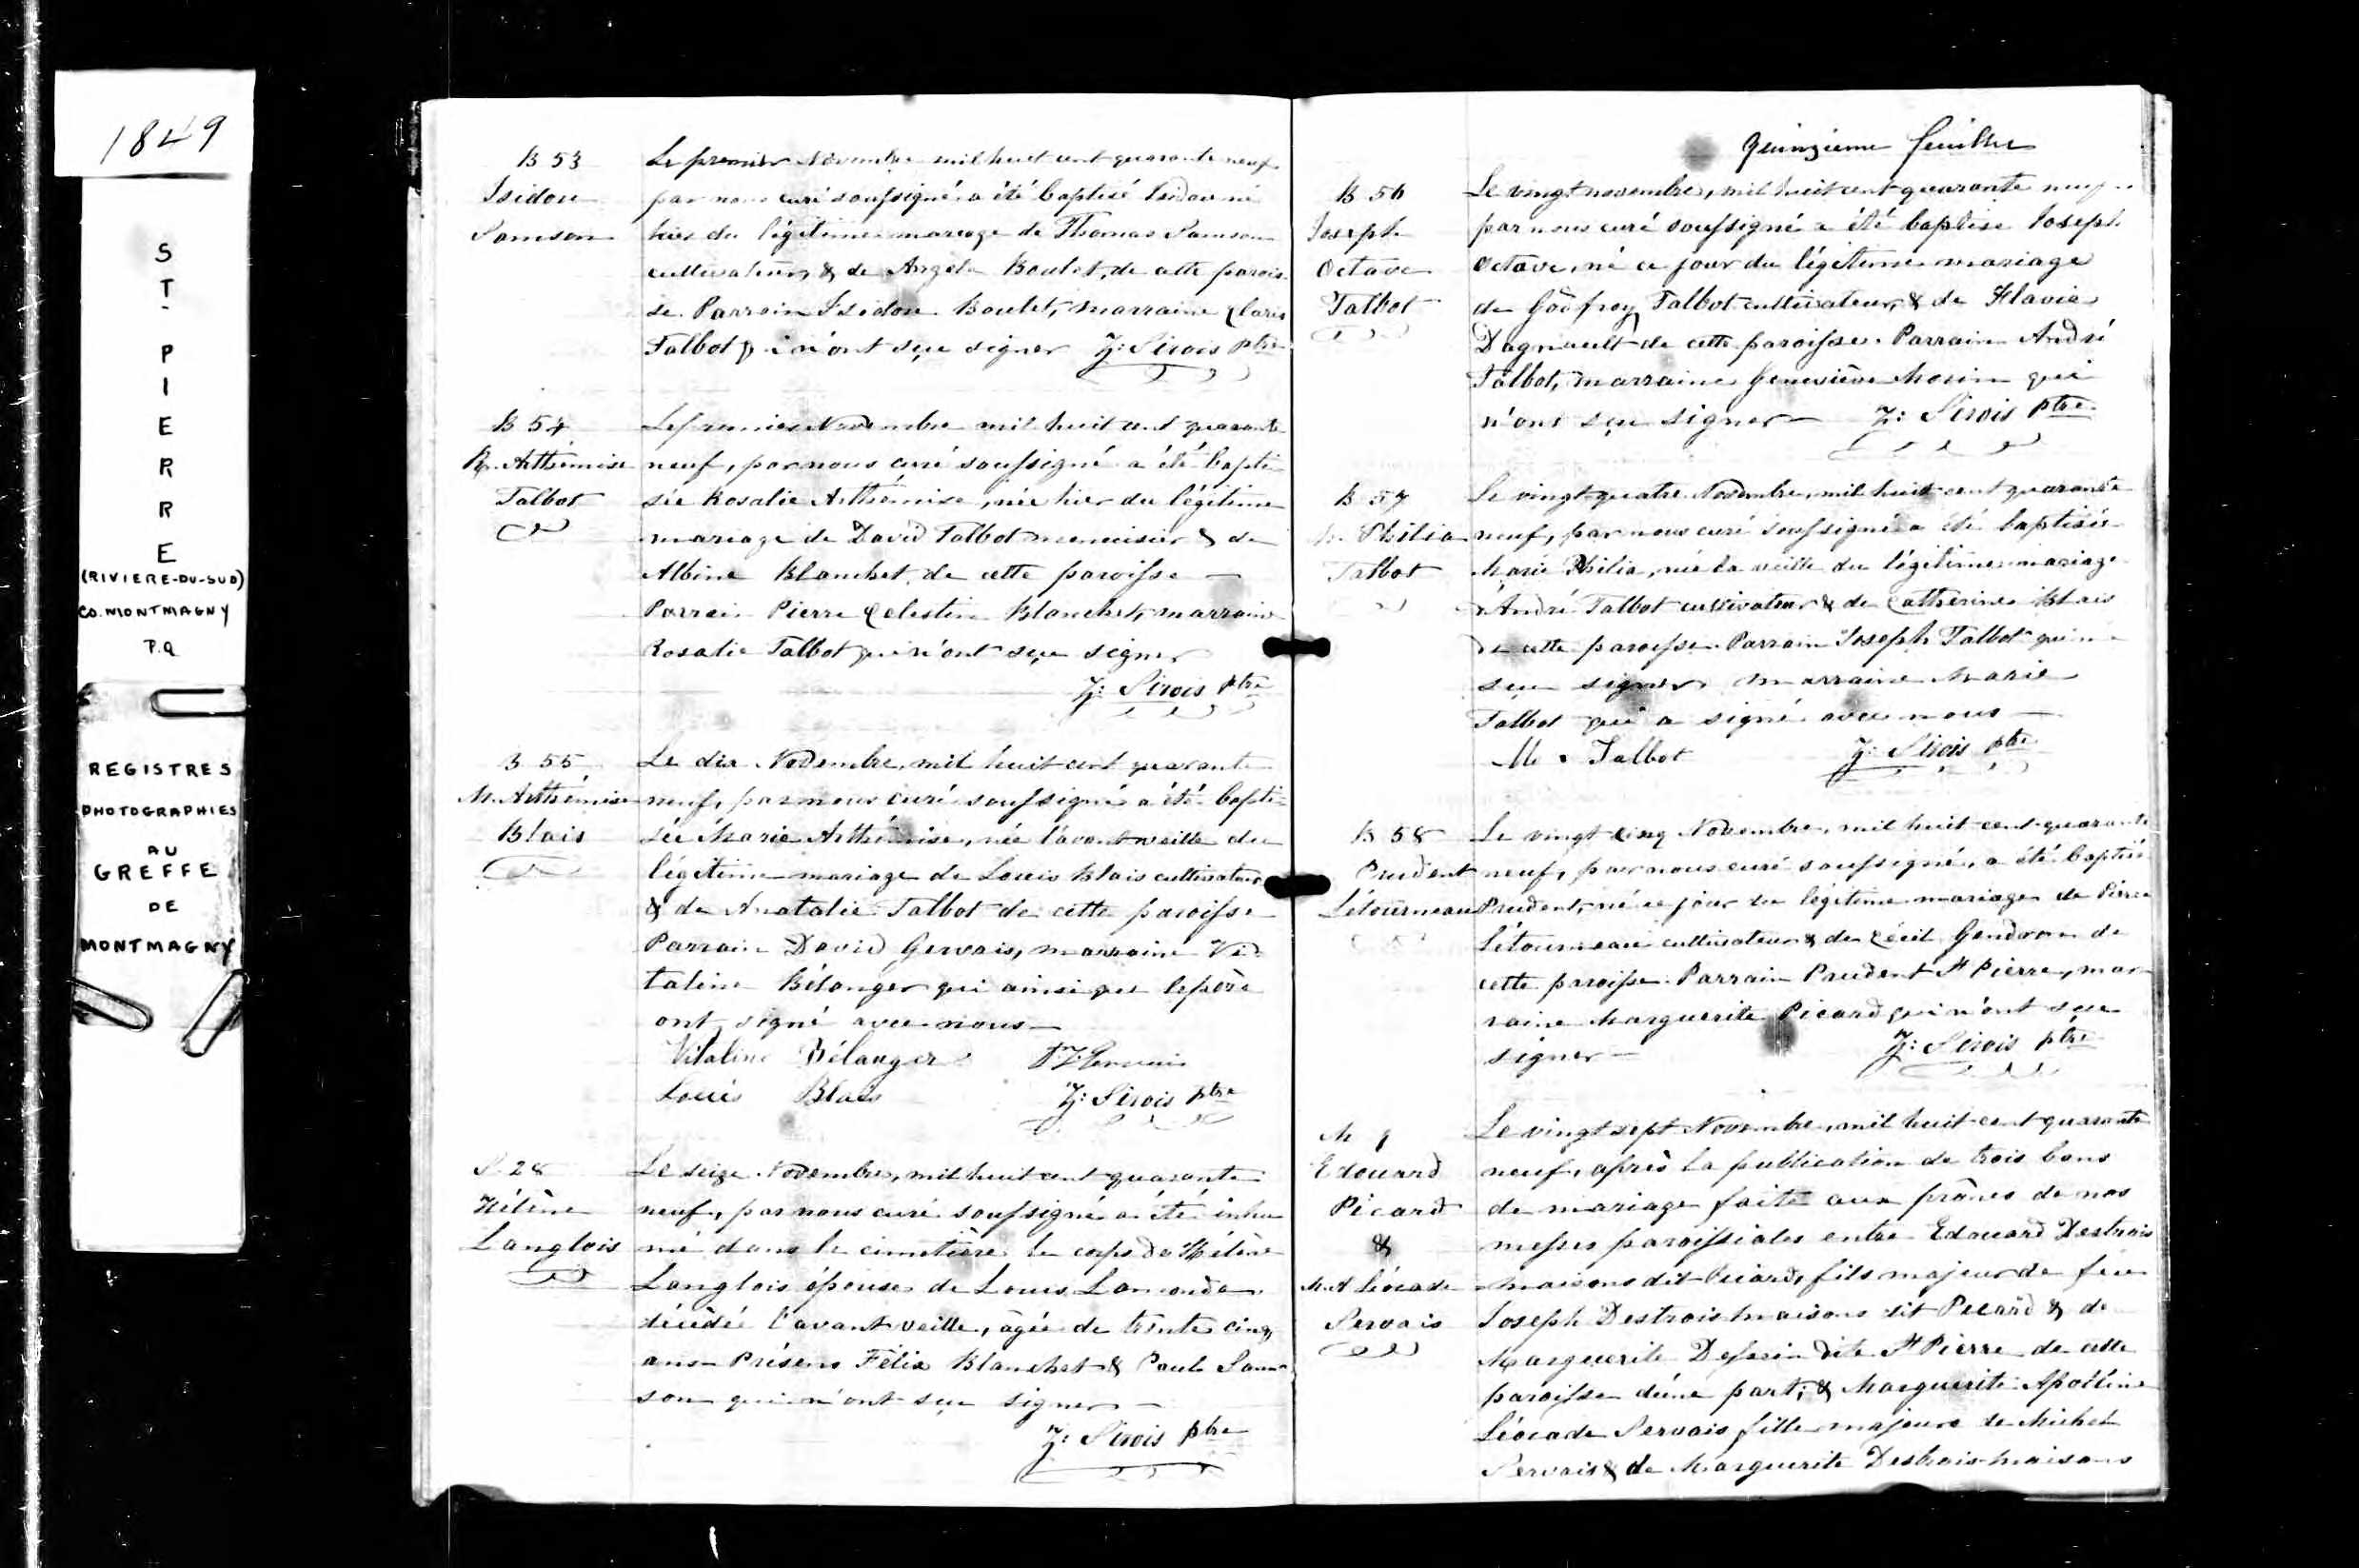 1849
ST-PIERRE
(RIVIERE-DU-SUD)
CO. MONTMAGNY
P.Q
REGISTRES
PHOTOGRAPHIES
AU
GREFFE
DE
MONTMAGNY
B 53
Isidore
Samson
Le premier Novembre mil huit cent quarante neuf
par nous curé soussigné a été baptisé Isidore né
hier du légitime mariage de Thomas Samson
cultivateur & de Angele Boulet, de cette parois
se. Parrain Isidore Boulet, marraine Claris
Talbot qui n'ont sçu signer Z: Sirois ptre
B 54
R. Arthémise
Talbot
Le premier Novembre mil huit cent quarante
neuf, par nous curé soussigné a été bapti
sée Rosalie Arthémise, née hier du légitime
mariage de David Talbot menuisier & de
Albine Blanchet, de cette paroisse —
Parrain Pierre Celestin Blanchet, marraine
Rosalie Talbot qui n'ont sçu signer
Z: Sirois ptre
B 55
M. Arthémise
Blais
Le dix Novembre, mil huit cent quarante
neuf, par nous curé soussigné a été bapti=
sée Marie Arthémise, née l'avant veille du
légitime mariage de Louis Blais cultivateur
& de Anatalie Talbot de cette paroisse
Parrain David Gervais, marraine Vi=
taline Bélanger qui ainsi que le père
ont signé avec nous —
Vitaline Bélanger Gervais
Louis Blais Z: Sirois ptre
S. 28
Hélène
Langlois
Le seize Novembre, mil huit cent quarante
neuf, par nous curé soussigné a été inhu
mé dans le cimetière le corps de Hélène
Langlois épouse de Louis Lamonde
décédée l'avant veille, âgée de trente cinq
ans — Présens Félix Blanchet & Paul Sam=
son qui n'ont sçu signer —
Z: Sirois ptre
quinzieme feuillet
B 56
Joseph
Octave
Talbot
Le vingt novembre, mil huit cent quarante neuf
par nous curé soussigné a été baptisé Joseph
Octave, né ce jour du légitime mariage
de Godfroy Talbot cultivateur, & de Flavie
Dagneault de cette paroisse. Parrain André
Talbot, marraine Geneviève Morin qui
n'ont sçu signer — Z: Sirois ptre
B 57
M. Philia
Talbot
Le vingt quatre Novembre, mil huit cent quarante
neuf, par nous curé soussigné a été baptisée
Marie Philia, née la veille du légitime mariage
d'André Talbot cultivateur & de Catherine Blais
de cette paroisse. Parrain Joseph Talbot qui n'a
sçu signer, marraine Marie
Talbot qui a signé avec nous —
M. Talbot Z: Sirois ptre
B 58
Prudent
Létourneau
Le vingt cinq Novembre, mil huit cent quarante
neuf, par nous curé soussigné, a été baptisé
Prudent, né ce jour du légitime mariage de Pierre
Létourneau cultivateur & de Cécile Gendron de
cette paroisse. Parrain Prudent St Pierre, mar=
raine Marguerite Picard qui n'ont sçu
signer — Z: Sirois ptre
M 9
Edouard
Picard
&
M. A Léocade
Servais
Le vingt sept Novembre, mil huit cent quarante
neuf, après la publication de trois bans
de mariage faite aux prônes de nos
messes paroissiales entre Edouard Destrois
maisons dit Picard, fils majeur de feu
Joseph Destroismaisons dit Picard & de
Marguerite Dessein dite St Pierre de cette
paroisse d'une part; & Marguerite Apolline
Léocade Servais fille majeure de Michel
Servais & de Marguerite Destroismaisons